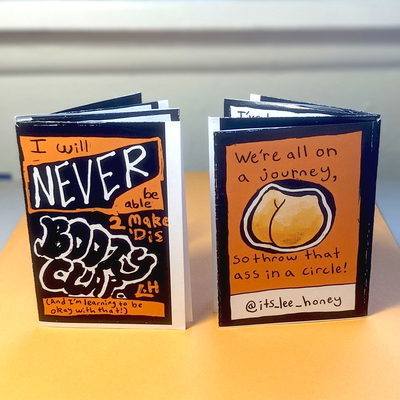 I will
NEVER
be
able
2 Make
'Dis
BOOTY
CLAP.
LH
(And I'm learning to be
okay with that!)
I've
We're all on
a journey,
so throw that
ass in a circle!
@its_lee_honey